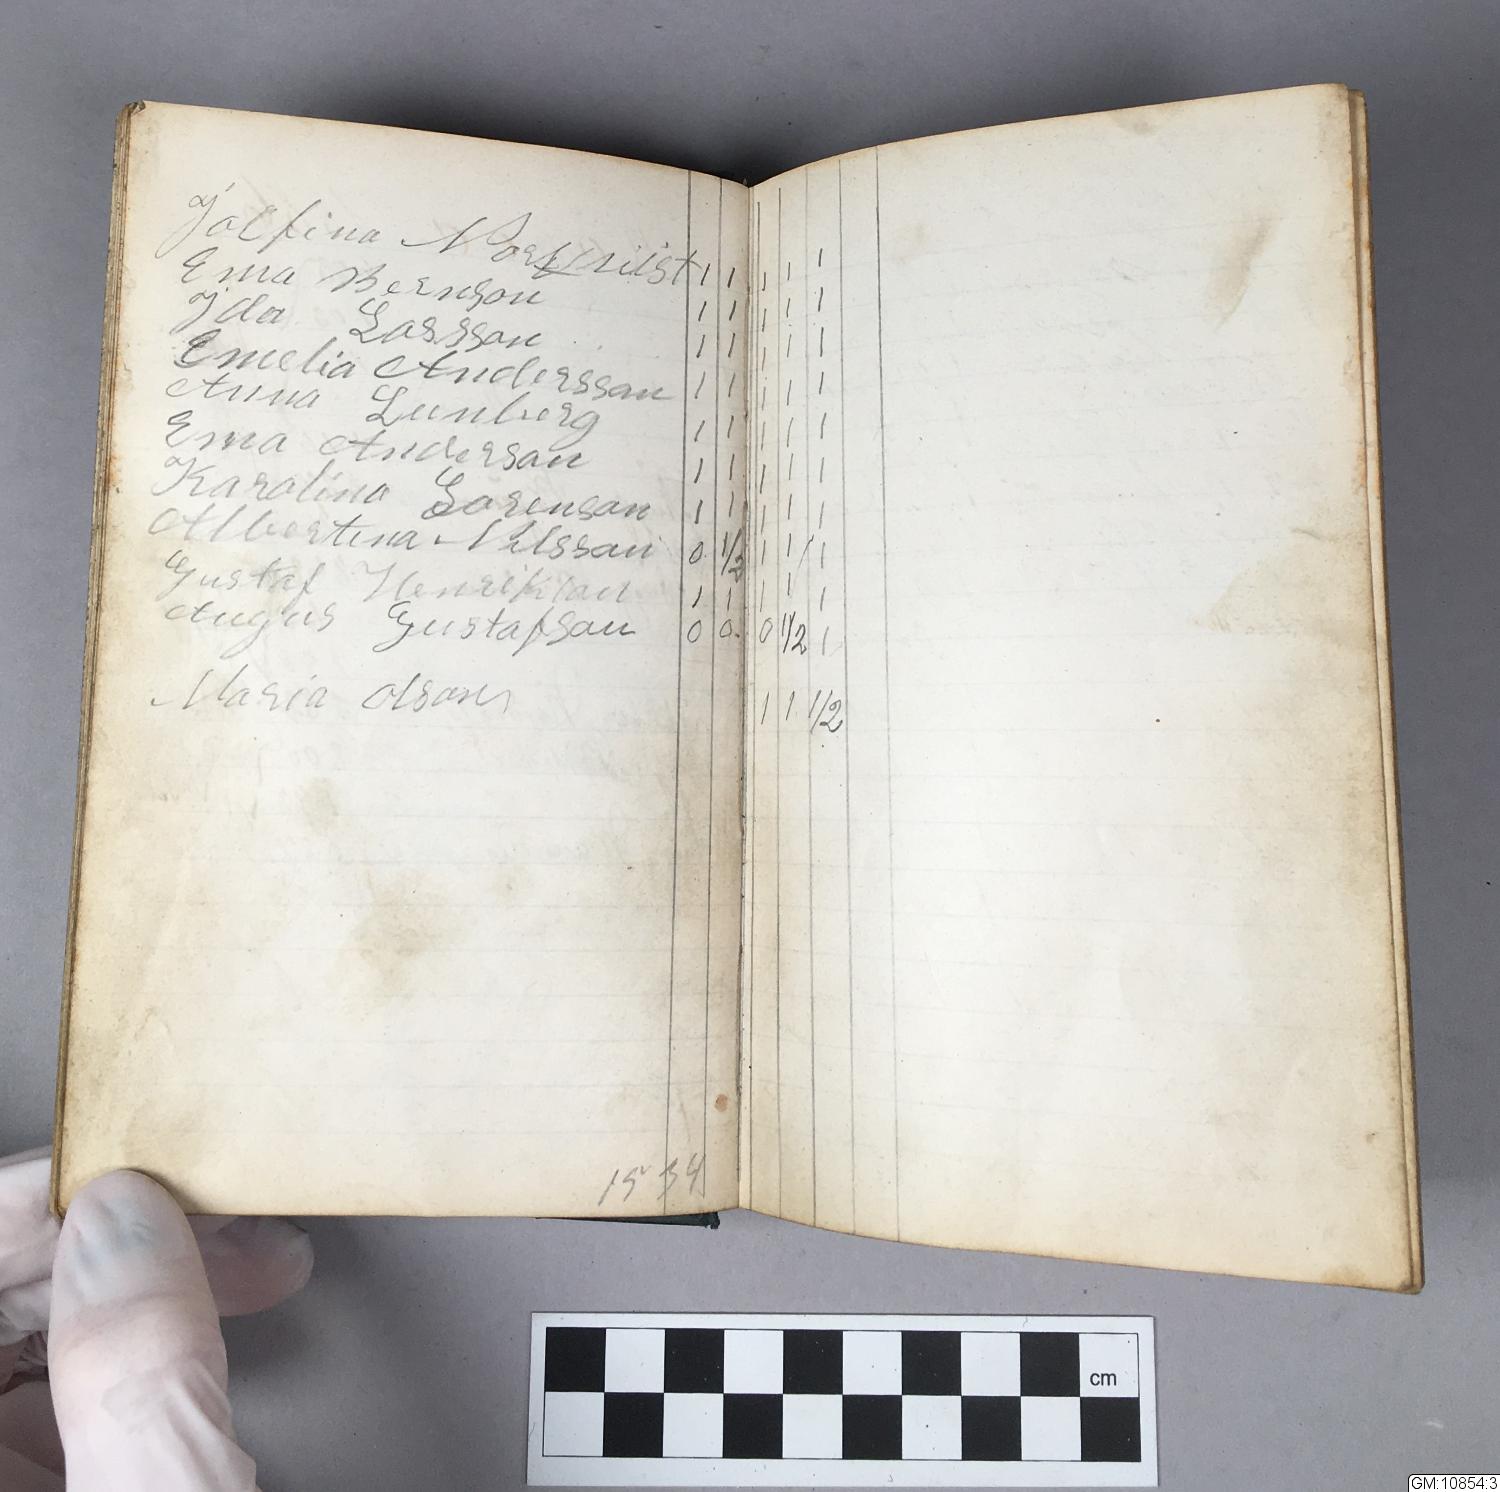 Jolfina Norkvist 1 1 1 1 1
Ema Bernson 1 1 1 1 1
Ida Lasson 1 1 1 1 1
Emelia Andersson 1 1 1 1 1
Anna Lunberg 1 1 1 1 1
Ema Anderson 1 1 1 1 1
Karolina Sorenson 1 1 1 1 1
Albertina Nilsson 0 1/2 1 1 1
Gustaf Henrikson 1 1 1 1 1
Augus Gustafson 0 0 0 1/2 1
Maria Olson 1 1 1/2
34
cm
GM:10854:3